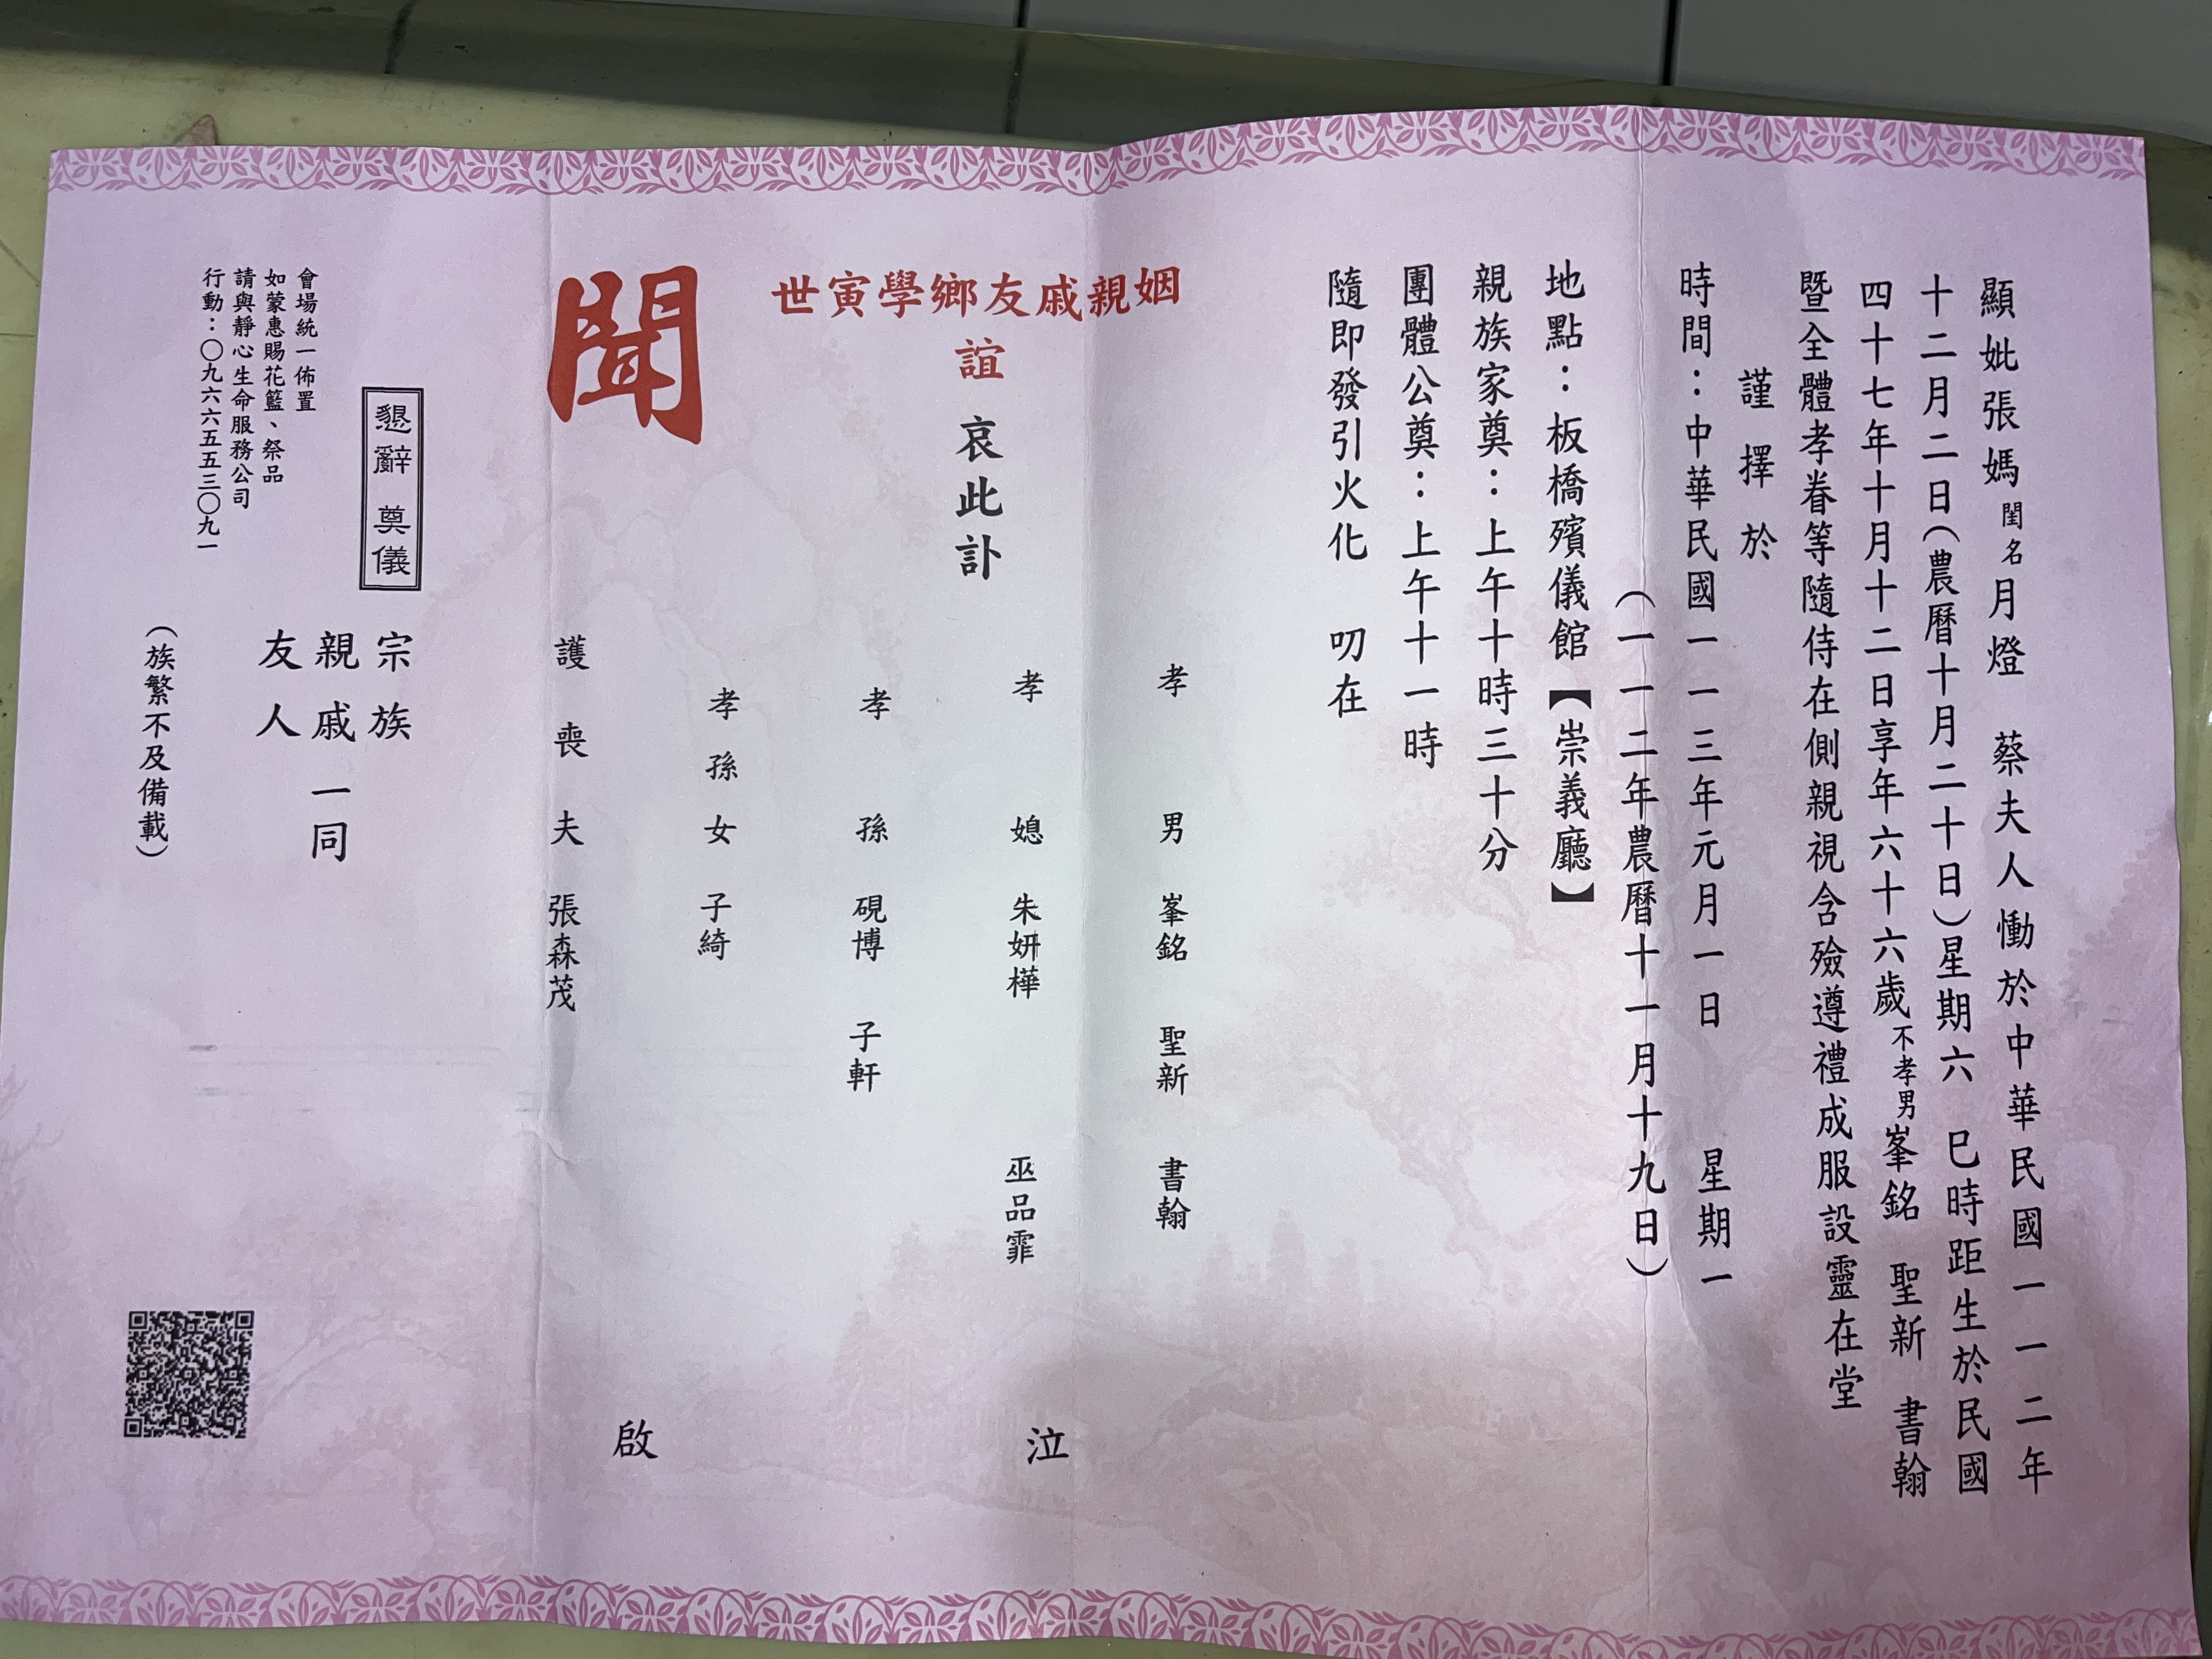 顯妣張媽閨名月燈　蔡夫人慟於中華民國一一二年
十二月二日(農曆十月二十日)星期六　巳時距生於民國
四十七年十月十二日享年六十六歲不孝男峯銘　聖新　書翰
暨全體孝眷等隨侍在側親視含殮遵禮成服設靈在堂
謹擇於
時間：中華民國一一三年元月一日　星期一
(一一二年農曆十一月十九日)
地點：板橋殯儀館【崇義廳】
親族家奠：上午十時三十分
團體公奠：上午十一時
隨即發引火化　叨在
姻親戚友鄉學寅世
誼　哀此訃
聞
孝男　峯銘　聖新　書翰
孝媳　朱妍樺　巫品霏
孝孫　硯博　子軒
孝孫女　子綺
護喪夫　張森茂
泣
啟
宗族
親戚一同
友人
(族繁不及備載)
懇辭　奠儀
會場統一佈置
如蒙惠賜花籃、祭品
請與靜心生命服務公司
行動：〇九六六五五三〇九一